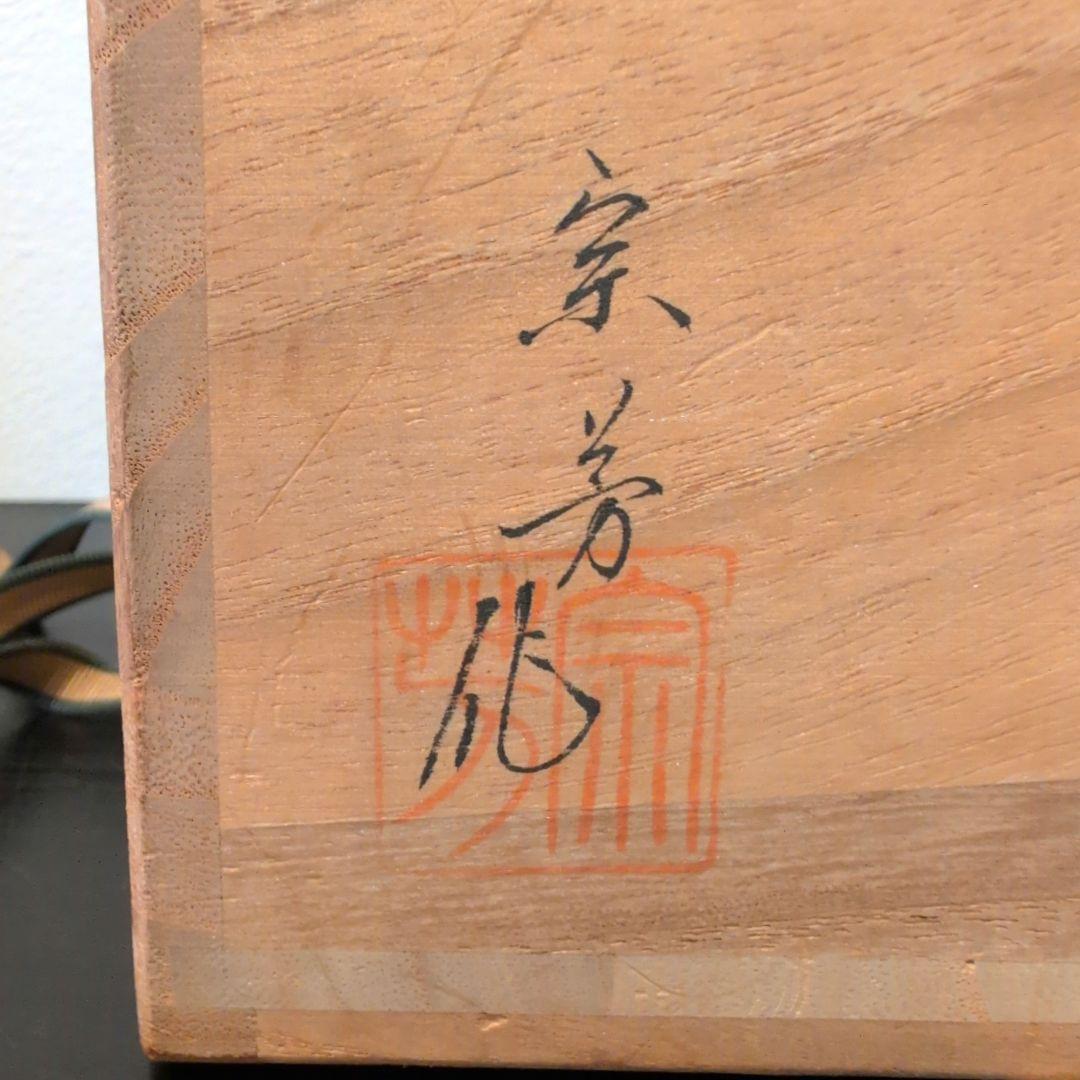 宗芳作
宗芳